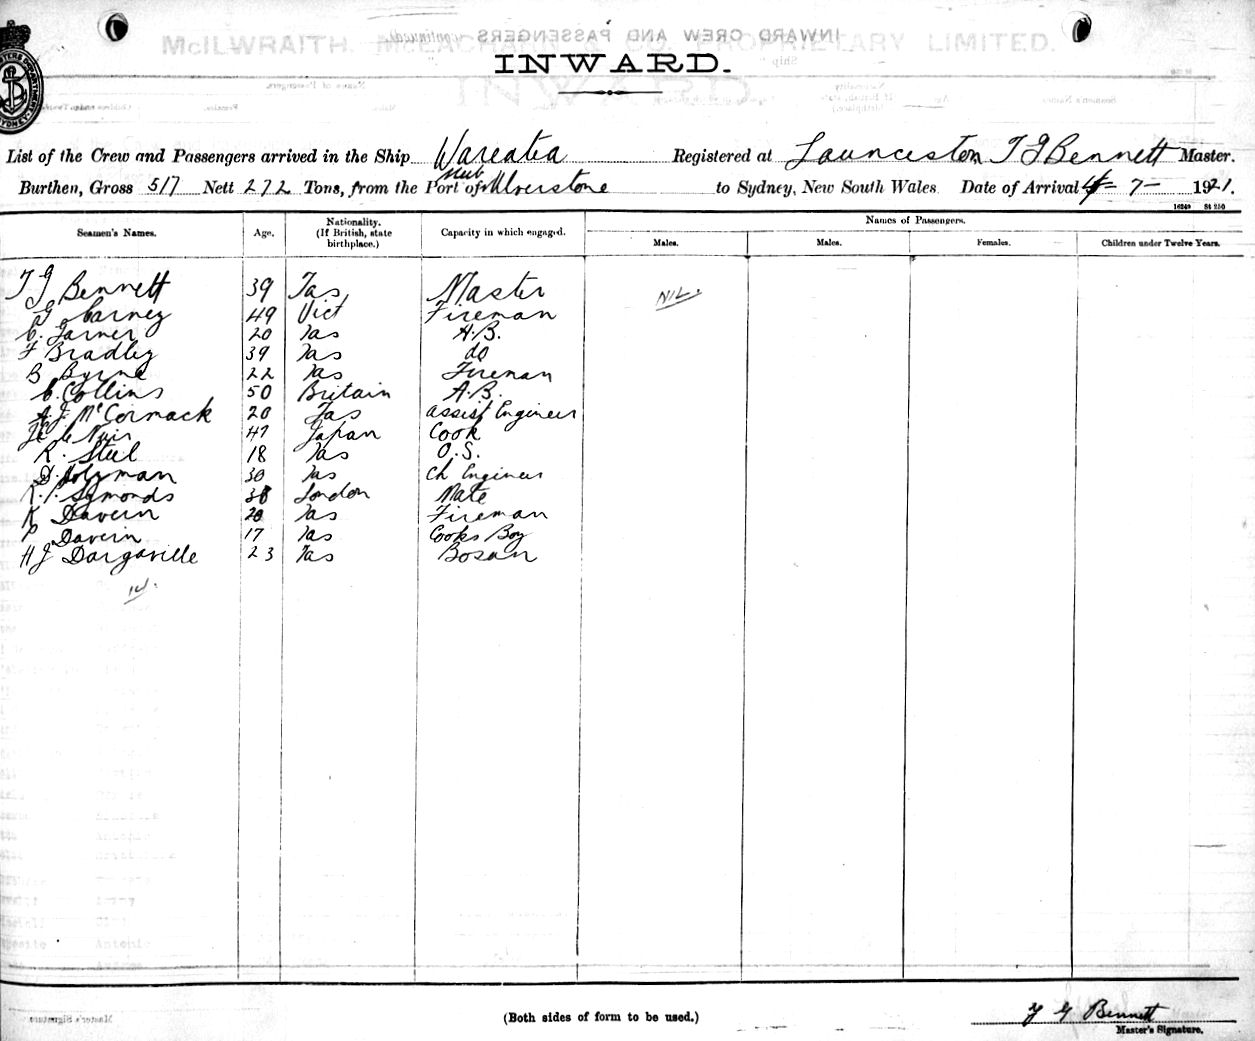 INWARD.
List of the Crew and Passengers arrived in the Ship Wareatea Registered at Launceston T G Bennett Master.
Burthen, Gross 517 Nett 272 Tons, from the Port of Ulverstone to Sydney, New South Wales Date of Arrival 4 - 7 - 1921.
Seamen's Names. Age. Nationality. (If British, state birthplace.) Capacity in which engaged. Names of Passengers.
Males. Males. Females. Children under Twelve Years.
T G Bennett 39 Tas Master NIL.
G Carney 49 Vict Fireman
C. Garner 20 Tas A.B.
F Bradley 39 Tas do
B Byrne 22 Tas Fireman
C. Collins 50 Britain A.B.
A. J. McCormack 20 Tas assist Engineer
47 Japan Cook
R. Steel 18 Tas O.S.
D. Holyman 30 Tas Ch Engineer
R. P. Symonds London Mate
K Davern 20 Tas Fireman
P Davern 17 Tas Cooks Boy
H J Dargaville 23 Tas Bosun
14.
(Both sides of form to be used.)
T G Bennett
Master's Signature.